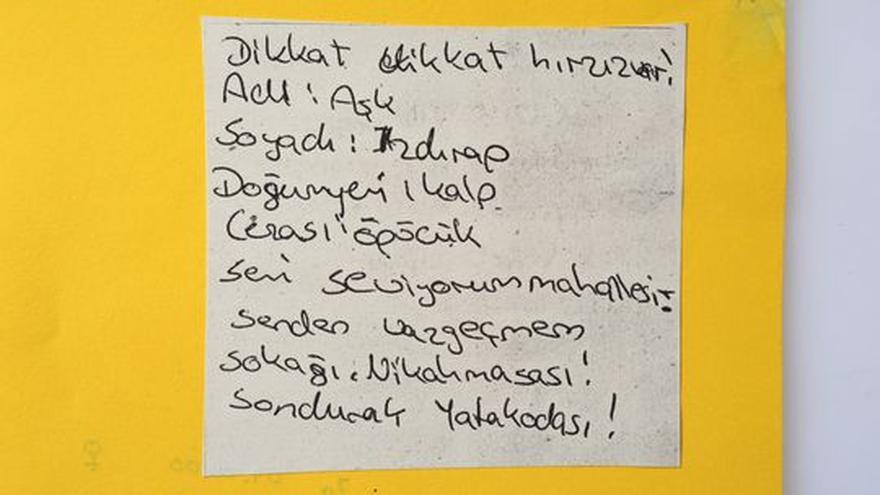 Dikkat dikkat hırzızvar!
Adı : Aşk
Soyadı : Izdırap
Doğumyeri : kalp.
Cezası : öpöcük
seni seviyorum mahallesi:
senden vazgeçmem
sokağı. Nikahmasası!
sondurak Yatakodası!